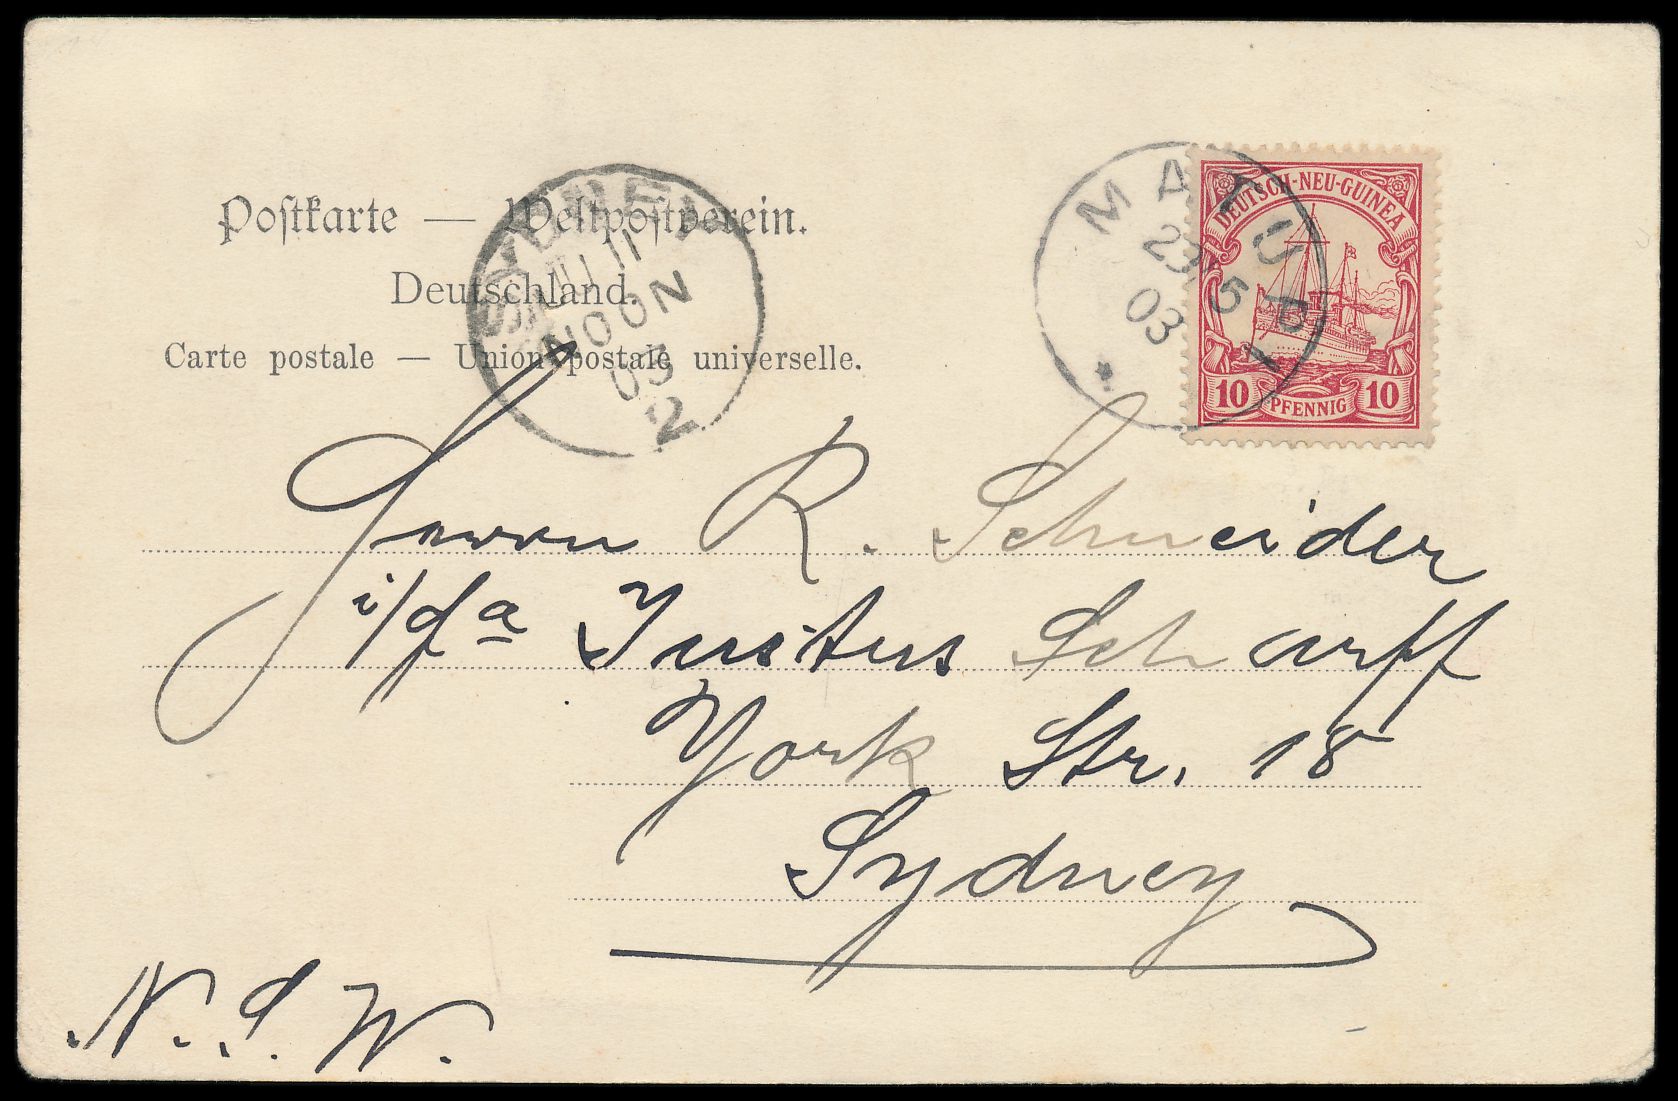 Postkarte — Weltpostverein.
Deutschland.
Carte postale — Union postale universelle.
SYDNEY
JU 11
NOON
03
2
MATUPI
23
5
03
*
DEUTSCH-NEU-GUINEA
10 PFENNIG 10
Herrn R. Schneider
i/fa Justus Scharff
York Str. 18
Sydney
N. S. W.